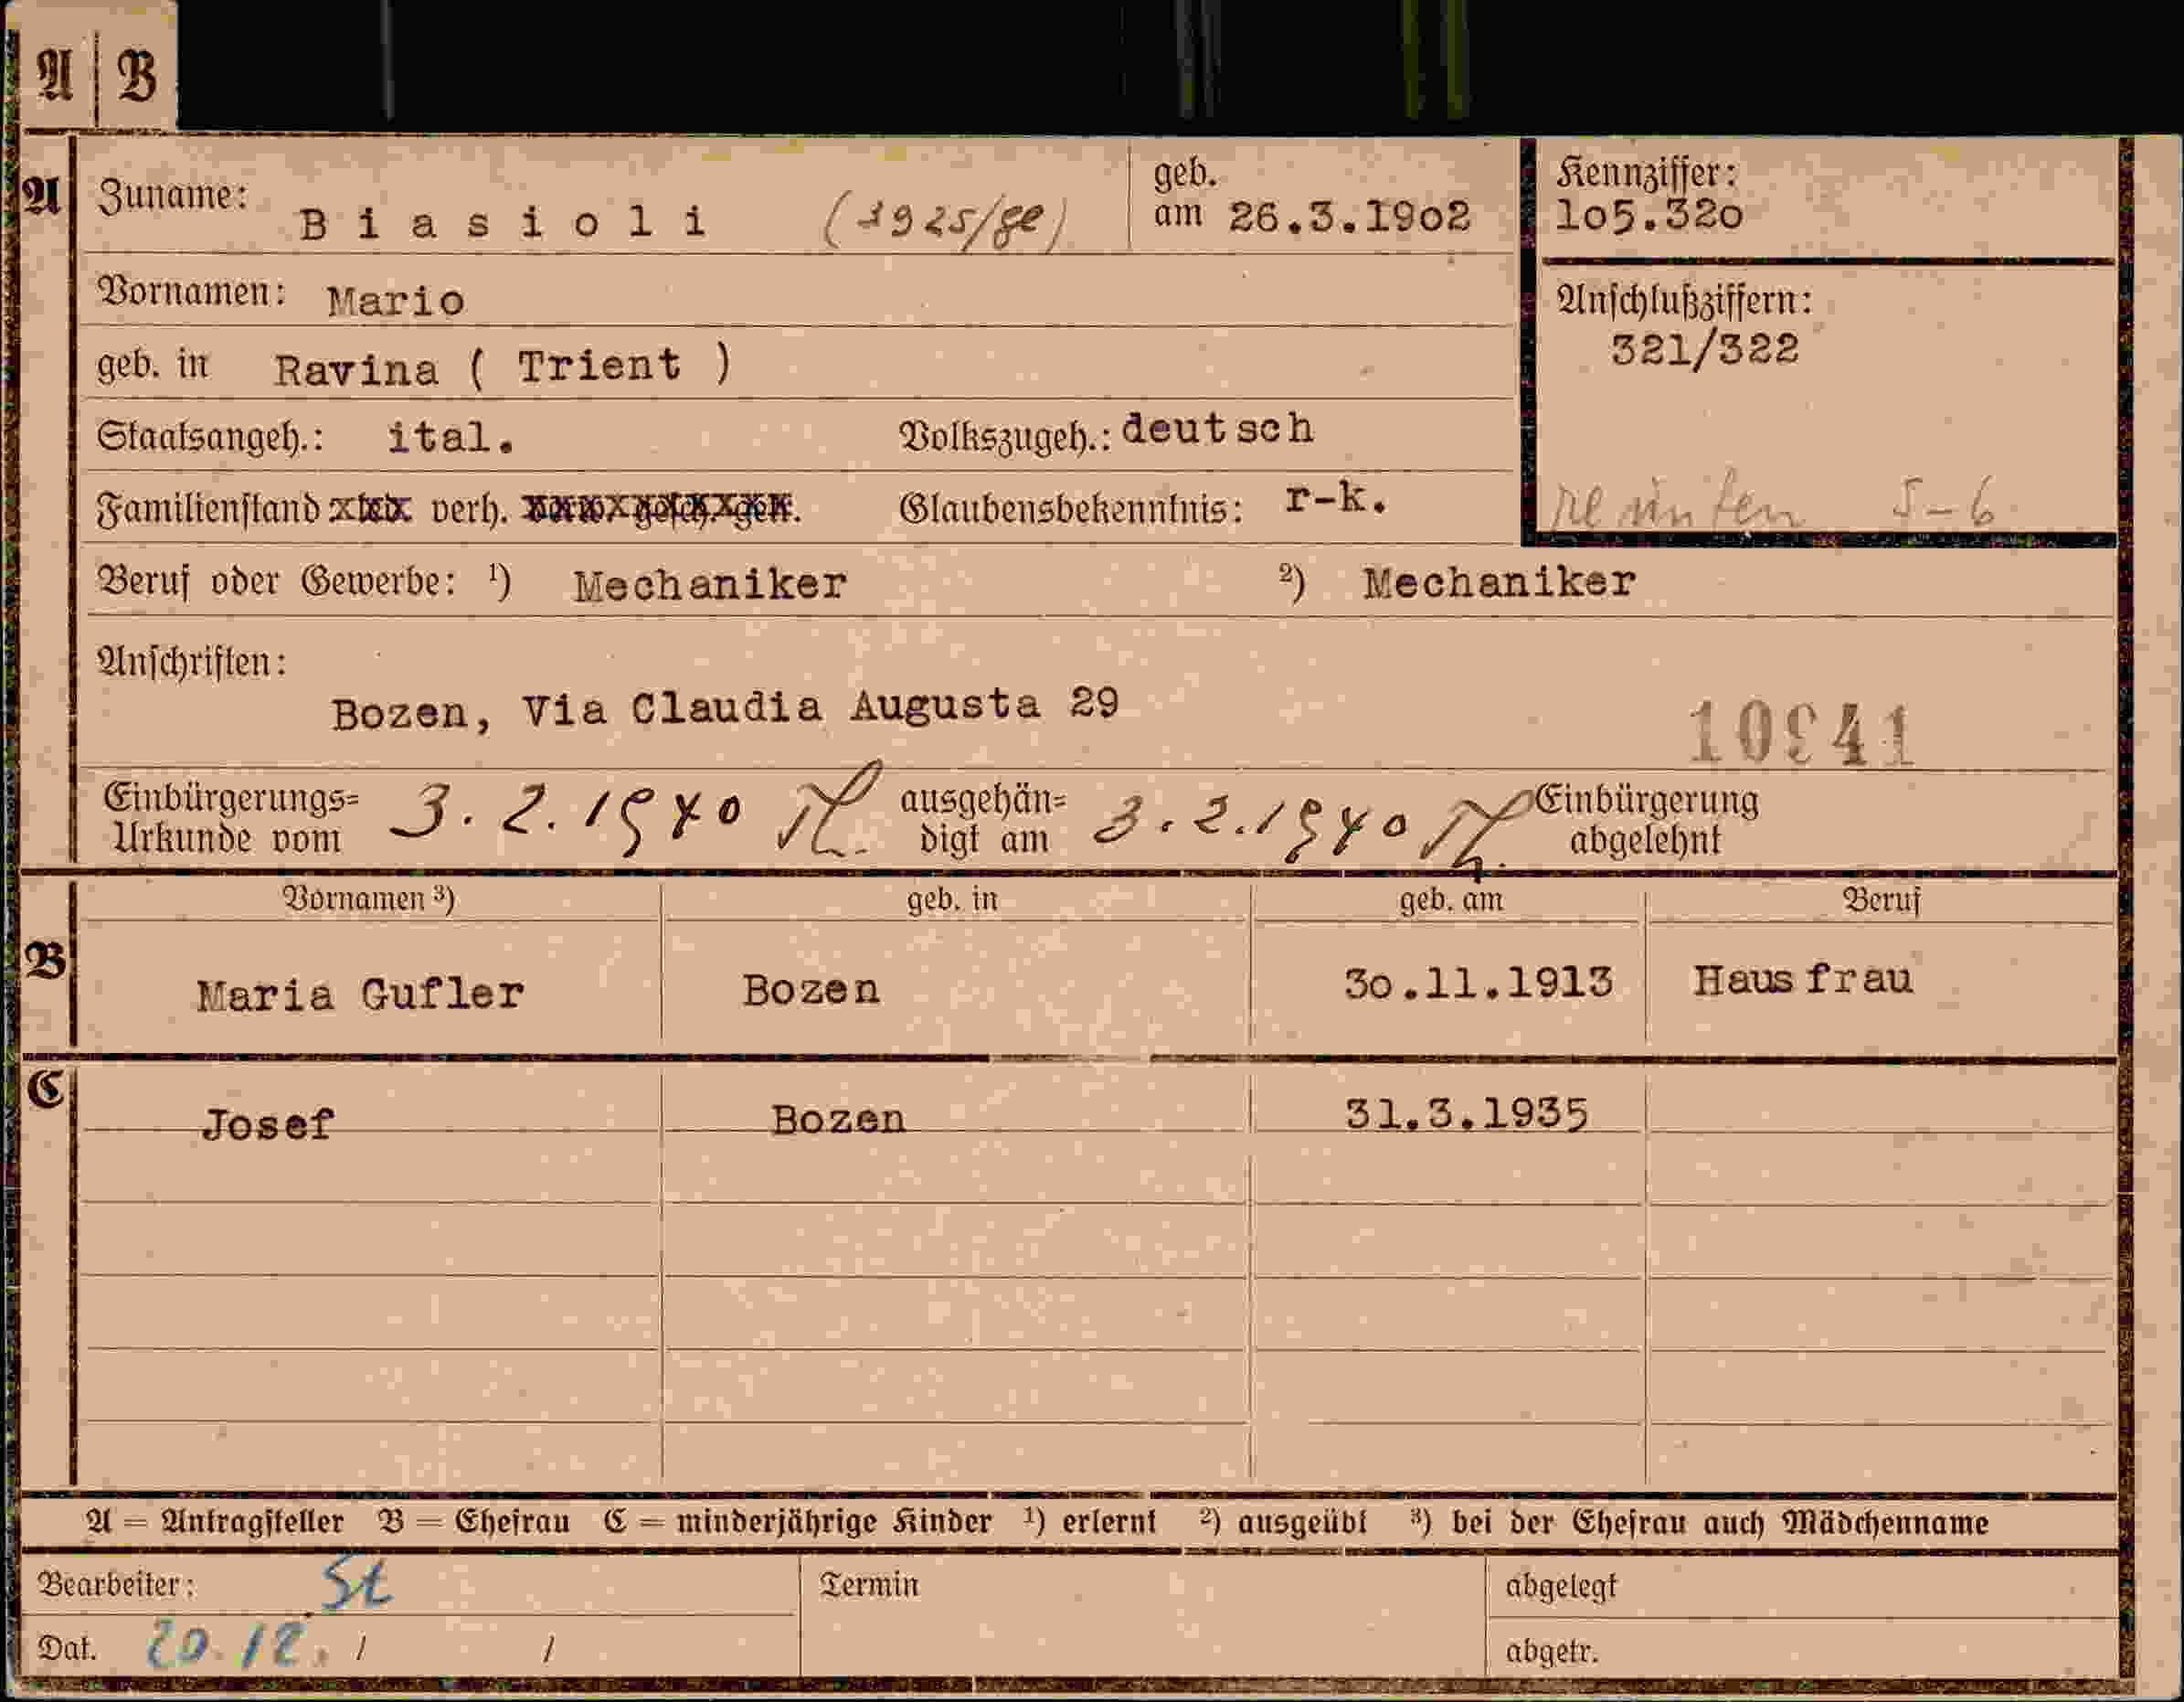 A | B
A
Zuname: Biasioli (1925/ge)
geb. am 26.3.19o2
Kennziffer: 1o5.32o
Vornamen: Mario
Anschlußziffern: 321/322
geb. in Ravina ( Trient )
Staatsangeh.: ital. Volkszugeh.: deutsch
Familienstand verh. Glaubensbekenntnis: r-k.
5-6
Beruf oder Gewerbe: ¹) Mechaniker ²) Mechaniker
Anschriften:
Bozen, Via Claudia Augusta 29
10941
Einbürgerungs= Urkunde vom 3.2.1940 ausgehän= digt am 3.2.1940 Einbürgerung abgelehnt
Vornamen ³) geb. in geb. am Beruf
B
Maria Gufler Bozen 3o.11.1913 Hausfrau
C
Josef Bozen 31.3.1935
A = Antragsteller B = Ehefrau C = minderjährige Kinder ¹) erlernt ²) ausgeübt ³) bei der Ehefrau auch Mädchenname
Bearbeiter: St Termin abgelegt
Dat. 20.12. / / abgetr.